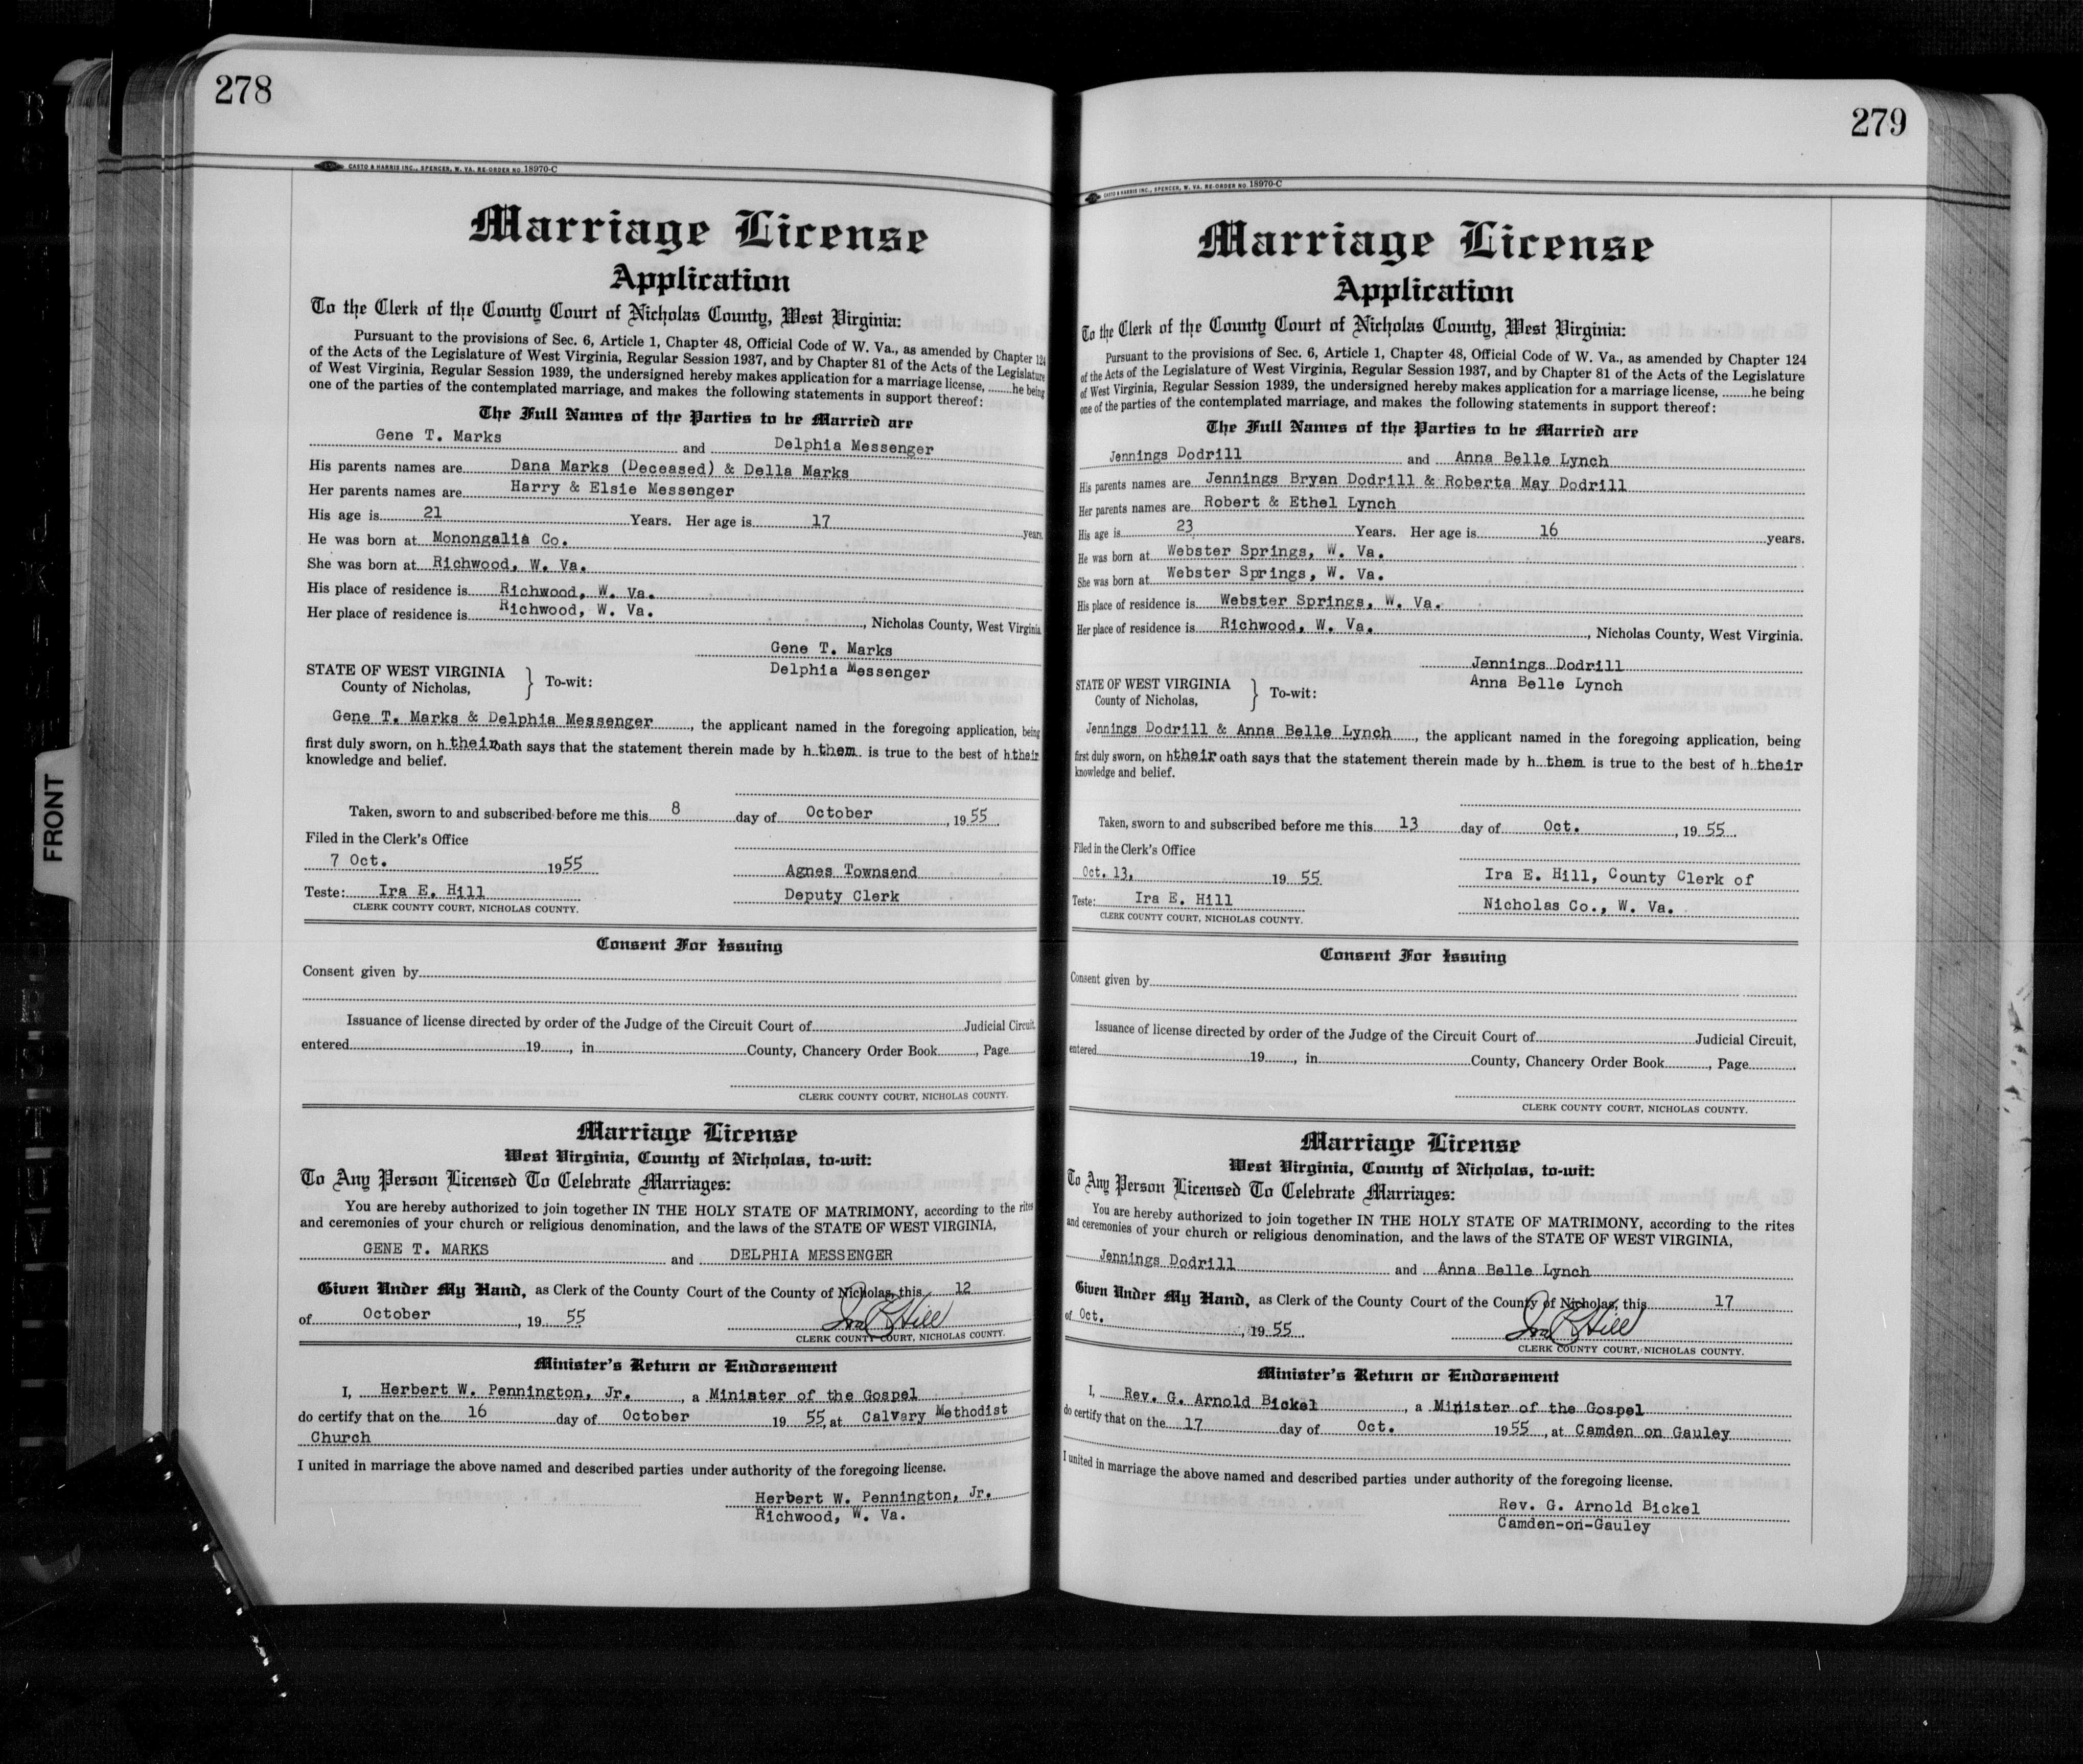 278
CASTO & HARRIS INC., SPENCER, W. VA. RE-ORDER NO. 18970-C
Marriage License
Application
To the Clerk of the County Court of Nicholas County, West Virginia:
Pursuant to the provisions of Sec. 6, Article 1, Chapter 48, Official Code of W. Va., as amended by Chapter 124
of the Acts of the Legislature of West Virginia, Regular Session 1937, and by Chapter 81 of the Acts of the Legislature
of West Virginia, Regular Session 1939, the undersigned hereby makes application for a marriage license, ........he being
one of the parties of the contemplated marriage, and makes the following statements in support thereof:
The Full Names of the Parties to be Married are
Gene T. Marks and Delphia Messenger
His parents names are Dana Marks (Deceased) & Della Marks
Her parents names are Harry & Elsie Messenger
His age is 21 Years. Her age is 17 years.
He was born at Monongalia Co.
She was born at Richwood, W. Va.
His place of residence is Richwood, W. Va.
Her place of residence is Richwood, W. Va. , Nicholas County, West Virginia
Gene T. Marks
STATE OF WEST VIRGINIA Delphia Messenger
County of Nicholas, } To-wit:
Gene T. Marks & Delphia Messenger , the applicant named in the foregoing application, being
first duly sworn, on h their oath says that the statement therein made by h them is true to the best of h their
knowledge and belief.
Taken, sworn to and subscribed before me this 8 day of October , 19 55
Filed in the Clerk's Office
7 Oct. 1955 Agnes Townsend
Teste: Ira E. Hill Deputy Clerk
CLERK COUNTY COURT, NICHOLAS COUNTY.
Consent For Issuing
Consent given by
Issuance of license directed by order of the Judge of the Circuit Court of Judicial Circuit,
entered 19 , in County, Chancery Order Book , Page
CLERK COUNTY COURT, NICHOLAS COUNTY.
Marriage License
West Virginia, County of Nicholas, to-wit:
To Any Person Licensed To Celebrate Marriages:
You are hereby authorized to join together IN THE HOLY STATE OF MATRIMONY, according to the rites
and ceremonies of your church or religious denomination, and the laws of the STATE OF WEST VIRGINIA,
GENE T. MARKS and DELPHIA MESSENGER
Given Under My Hand, as Clerk of the County Court of the County of Nicholas, this 12
of October , 19 55 Ira E Hill
CLERK COUNTY COURT, NICHOLAS COUNTY.
Minister's Return or Endorsement
I, Herbert W. Pennington, Jr. , a Minister of the Gospel
do certify that on the 16 day of October 19 55, at Calvary Methodist
Church
I united in marriage the above named and described parties under authority of the foregoing license.
Herbert W. Pennington, Jr.
Richwood, W. Va.
FRONT
279
CASTO & HARRIS INC., SPENCER, W. VA. RE-ORDER NO. 18970-C
Marriage License
Application
To the Clerk of the County Court of Nicholas County, West Virginia:
Pursuant to the provisions of Sec. 6, Article 1, Chapter 48, Official Code of W. Va., as amended by Chapter 124
of the Acts of the Legislature of West Virginia, Regular Session 1937, and by Chapter 81 of the Acts of the Legislature
of West Virginia, Regular Session 1939, the undersigned hereby makes application for a marriage license, ........he being
one of the parties of the contemplated marriage, and makes the following statements in support thereof:
The Full Names of the Parties to be Married are
Jennings Dodrill and Anna Belle Lynch
His parents names are Jennings Bryan Dodrill & Roberta May Dodrill
Her parents names are Robert & Ethel Lynch
His age is 23 Years. Her age is 16 years.
He was born at Webster Springs, W. Va.
She was born at Webster Springs, W. Va.
His place of residence is Webster Springs, W. Va.
Her place of residence is Richwood, W. Va. , Nicholas County, West Virginia.
Jennings Dodrill
STATE OF WEST VIRGINIA Anna Belle Lynch
County of Nicholas, } To-wit:
Jennings Dodrill & Anna Belle Lynch , the applicant named in the foregoing application, being
first duly sworn, on h their oath says that the statement therein made by h them is true to the best of h their
knowledge and belief.
Taken, sworn to and subscribed before me this 13 day of Oct. , 19 55
Filed in the Clerk's Office
Oct. 13, 19 55 Ira E. Hill, County Clerk of
Teste: Ira E. Hill Nicholas Co., W. Va.
CLERK COUNTY COURT, NICHOLAS COUNTY.
Consent For Issuing
Consent given by
Issuance of license directed by order of the Judge of the Circuit Court of Judicial Circuit,
entered 19 , in County, Chancery Order Book , Page
CLERK COUNTY COURT, NICHOLAS COUNTY.
Marriage License
West Virginia, County of Nicholas, to-wit:
To Any Person Licensed To Celebrate Marriages:
You are hereby authorized to join together IN THE HOLY STATE OF MATRIMONY, according to the rites
and ceremonies of your church or religious denomination, and the laws of the STATE OF WEST VIRGINIA,
Jennings Dodrill and Anna Belle Lynch
Given Under My Hand, as Clerk of the County Court of the County of Nicholas, this 17
of Oct. , 19 55 Ira E Hill
CLERK COUNTY COURT, NICHOLAS COUNTY.
Minister's Return or Endorsement
I, Rev. G. Arnold Bickel , a Minister of the Gospel
do certify that on the 17 day of Oct. 1955 , at Camden on Gauley
I united in marriage the above named and described parties under authority of the foregoing license.
Rev. G. Arnold Bickel
Camden-on-Gauley